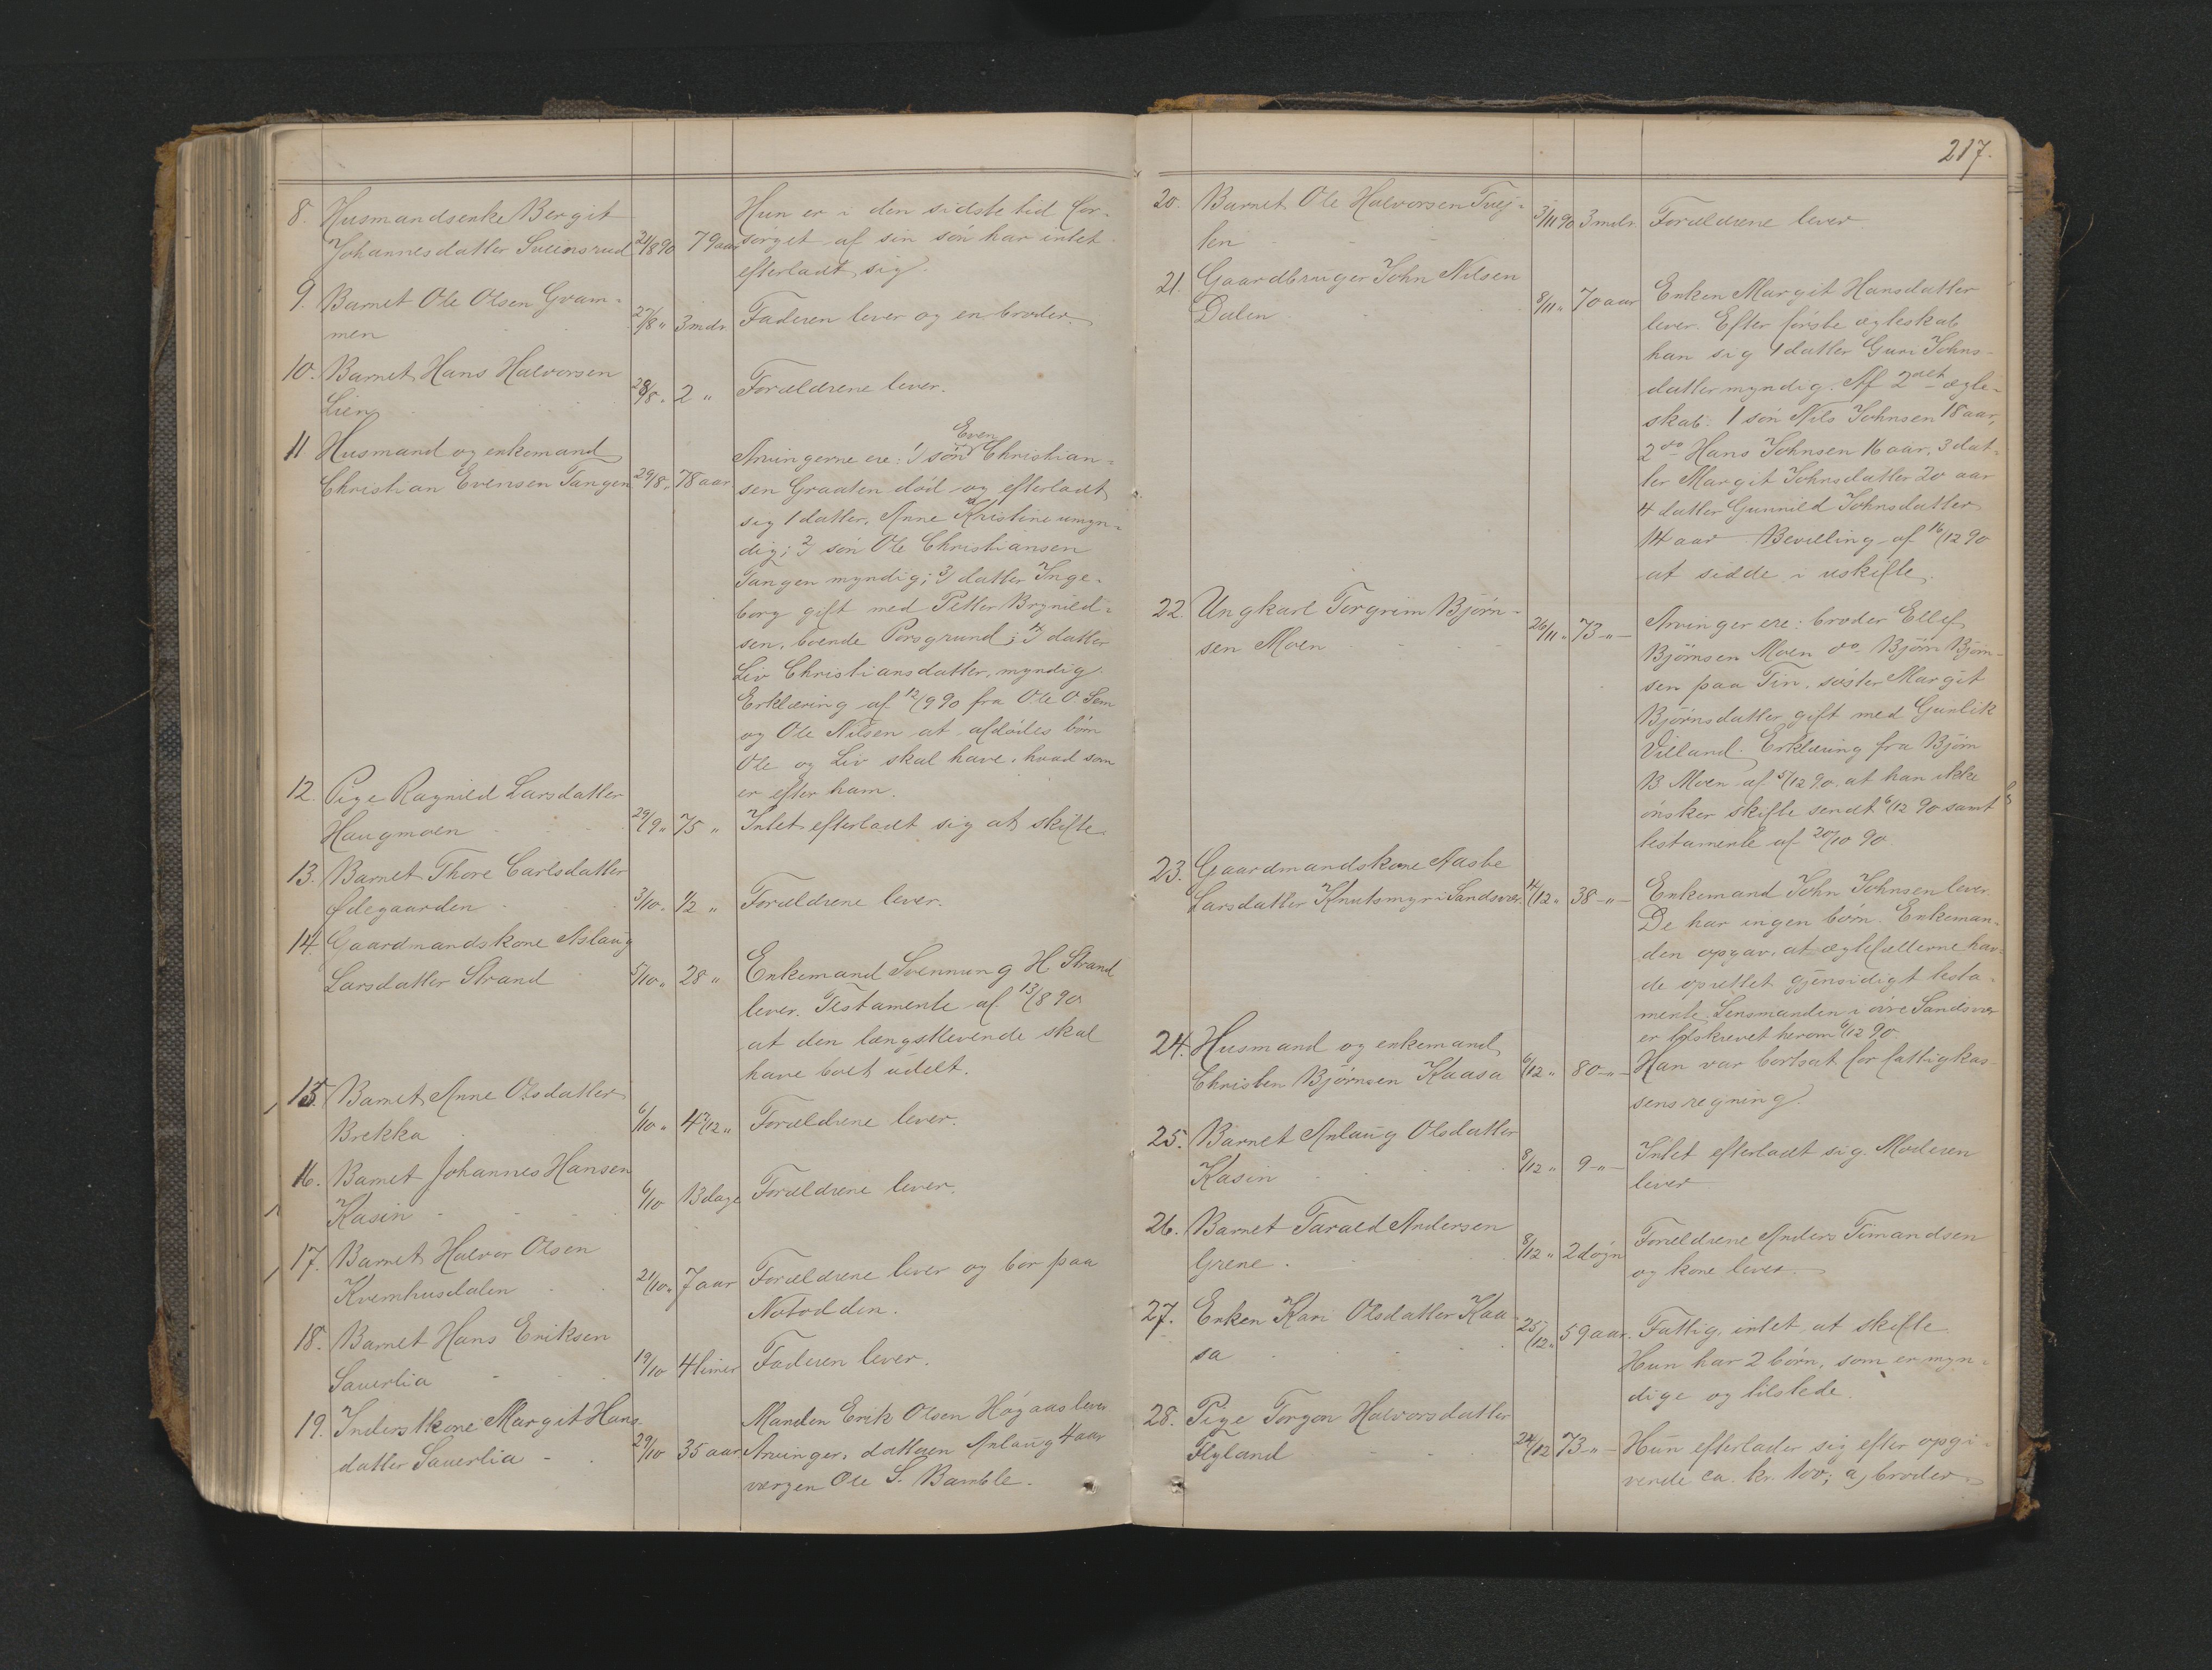 8. Husmandsenke Bergit
Johannesdatter Sveinsrud 24/8 90 79 aar
Hun er i den sidste tid for-
sørget af sin søn har intet
efterladt sig.
9. Barnet Ole Olsen Gvam-
men 27/8 " 3 mdr.
Faderen lever og en broder.
10. Barnet Hans Halvorsen
Lien 28/8 " 2 "
Forældrene lever.
11 Husmand og enkemand
Christian Evensen Tangen 29/8 " 78 aar
Even
Arvingerne ere: 1) søn Christian-
sen Graaten død og efterladt
sig 1 datter, Anne Kristine umyn-
dig; 2) søn Ole Christiansen
Tangen myndig; 3) datter Inge-
borg gift med Petter Brynild-
sen, boende Porsgrund; 4) datter
Liv Christiansdatter, myndig.
Erklæring af 12/9 90 fra Ole O. Sem
og Ole Nilsen at afdødes børn
Ole og Liv skal have, hvad som
er efter ham.
12. Pige Ragnild Larsdatter
Haugmoen 29/9 " 75 "
Intet efterladt sig at skifte.
13. Barnet Thore Carlsdatter
Ødegaarden 3/10 " 1/2 "
Forældrene lever.
14. Gaardmandskone Aslaug
Larsdatter Strand 5/10 " 28 "
Enkemand Svennung H. Strand
lever. Testamente af 13/8 90
at den længstlevende skal
have boet udelt.
15. Barnet Anne Olsdatter
Brekka 6/10 "
Forældrene lever.
16. Barnet Johannes Hansen
Kasin 6/10 13 dage
Forældrene lever.
17. Barnet Halvor Olsen
Kvernhusdalen 21/10 " 7 aar
Forældrene lever og bor paa
Notodden.
18. Barnet Hans Eriksen
Sauerlia 19/10 4 timer
Faderen lever.
19. Inderstkone Margit Hans-
datter Sauerlia 29/10 35 aar
Manden Erik Olsen Høgaas lever
Arvinger, datteren Anlaug 4 aar
vergen Ole S. Bamble.
217.
20. Barnet Ole Halvorsen Tvej-
ten 3/11 90 3 mdr.
Forældrene lever
21. Gaardbruger John Nilsen
Dalen 8/11 " 70 aar
Enken Margit Hansdatter
lever. Efter første ægteskab
han sig 1 datter Guri Johns-
datter myndig. Af 2det ægte-
skab: 1 søn Nils Johnsen 18 aar,
2 do Hans Johnsen 16 aar, 3 dat-
ter Margit Johnsdatter 20 aar
4 datter Gunnild Johnsdatter
14 aar Bevilling af 16/12 90
at sidde i uskifte.
22. Ungkarl Torgrim Bjørn-
sen Moen 26/11 " 73 - " -
Arvinger ere: broder Ellef
Bjørnsen Moen do Bjørn Bjørn-
sen paa Tin, søster Margit
Bjørnsdatter gift med Gunlik
Villand. Erklæring fra Bjørn
B Moen af 5/12 90. at han ikke
ønsker skifte sendt 6/12 90 samt
testamente af 20/10 90.
23. Gaardmandskone Aasbe
Larsdatter Knutsmyr i Sandsvær. 4/12 " 38 - " -
Enkemand John Johnsen lever
De har ingen børn. Enkeman-
den opgav, at ægtefællerne hav-
de oprettet gjensidigt testa-
mente. Lensmanden i øvre Sandsvær
er tilskrevet herom 6/12 90.
24. Husmand og enkemand
Christen Bjørnsen Kaasa 6/12 " 80 - " -
Han var bortsat for fattigkas-
sens regning.
25. Barnet Anlaug Olsdatter
Kasin 8/12 " 9 - " -
Intet efterladt sig. Moderen
lever
26. Barnet Tarald Andersen
Grene 8/12 " 2 døgn
Forældrene Anders Timandsen
og kone lever.
27. Enken Kari Olsdatter Kaa-
sa 25/12 " 59 aar.
Fattig, intet at skifte
Hun har 2 børn, som er myn-
dige og tilstede.
28. Pige Torgon Halvorsdatter
Flyland 24/12 73 - " -
Hun efterlader sig efter opgi-
vende ca. kr. 100; a) broder